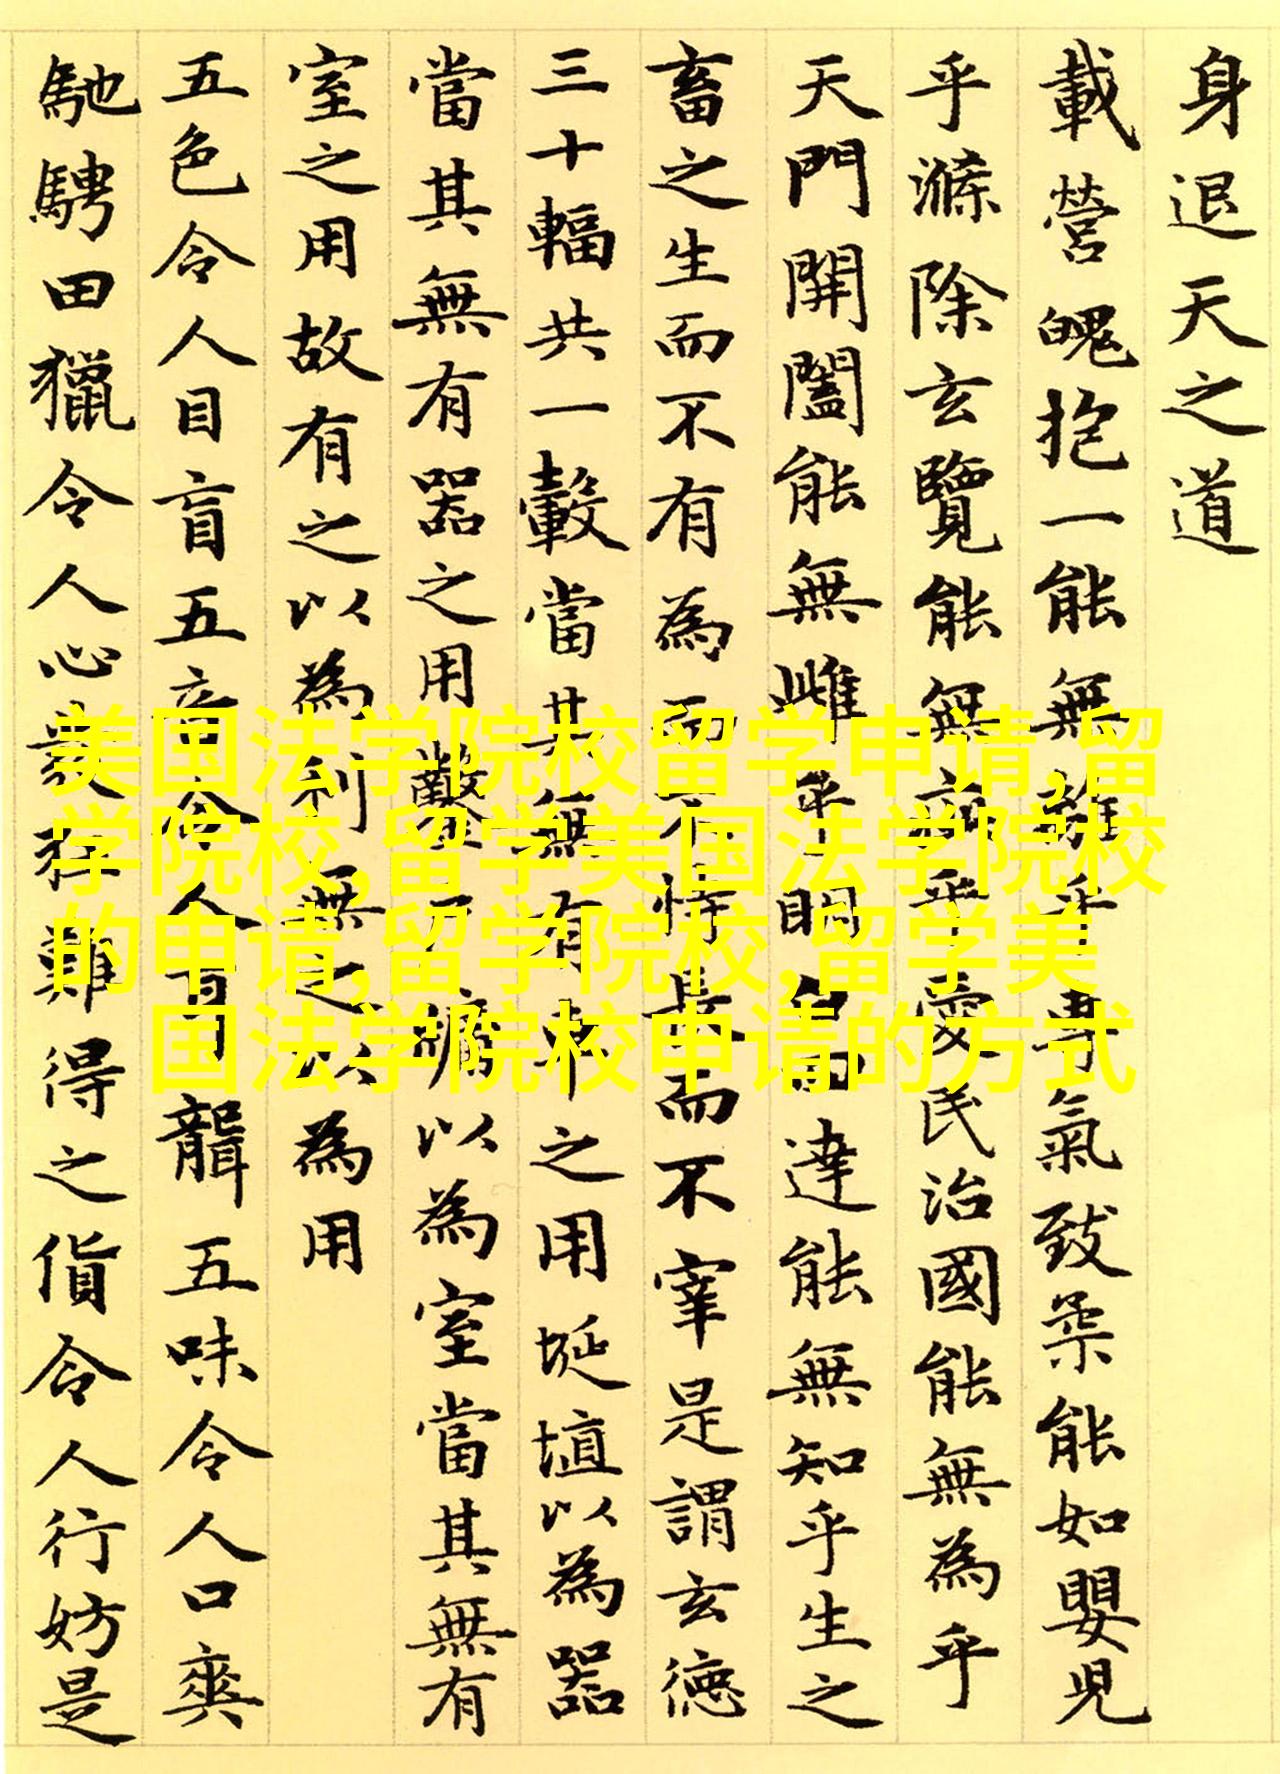 身退天之道
載營魄抱一能無離乎專氣致柔能如嬰兒
乎滌除玄覽能無疵乎愛民治國能無為乎
天門開闔能無雌乎明白四達能無知乎生之
畜之生而不有為而不恃長而不宰是謂玄德
三十輻共一轂當其無有車之用埏埴以為器
當其無有器之用鑿戶牖以為室當其無有
室之用故有之以為利無之以為用
五色令人目盲五音令人耳聾五味令人口爽
馳騁田獵令人心發狂難得之貨令人行妨是
美国法学院校留学申请,留
学院校,留学美国法学院校
的申请,留学院校,留学美
国法学院校申请的方式